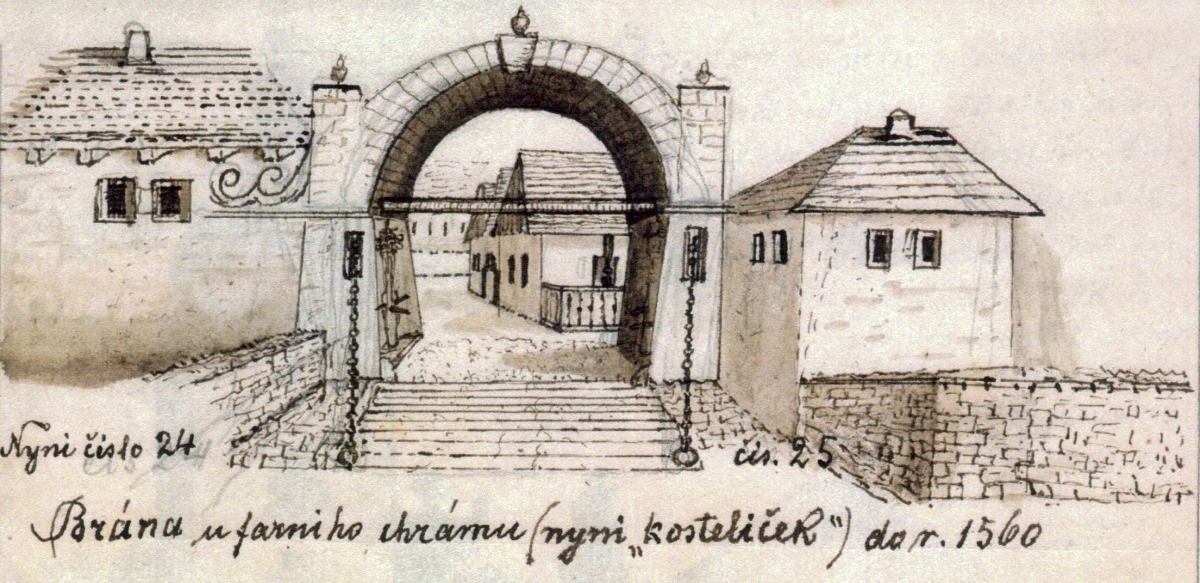 Nyni číslo 24
čís. 25
Brána u farniho chrámu (nyni „kosteliček“) do r. 1560